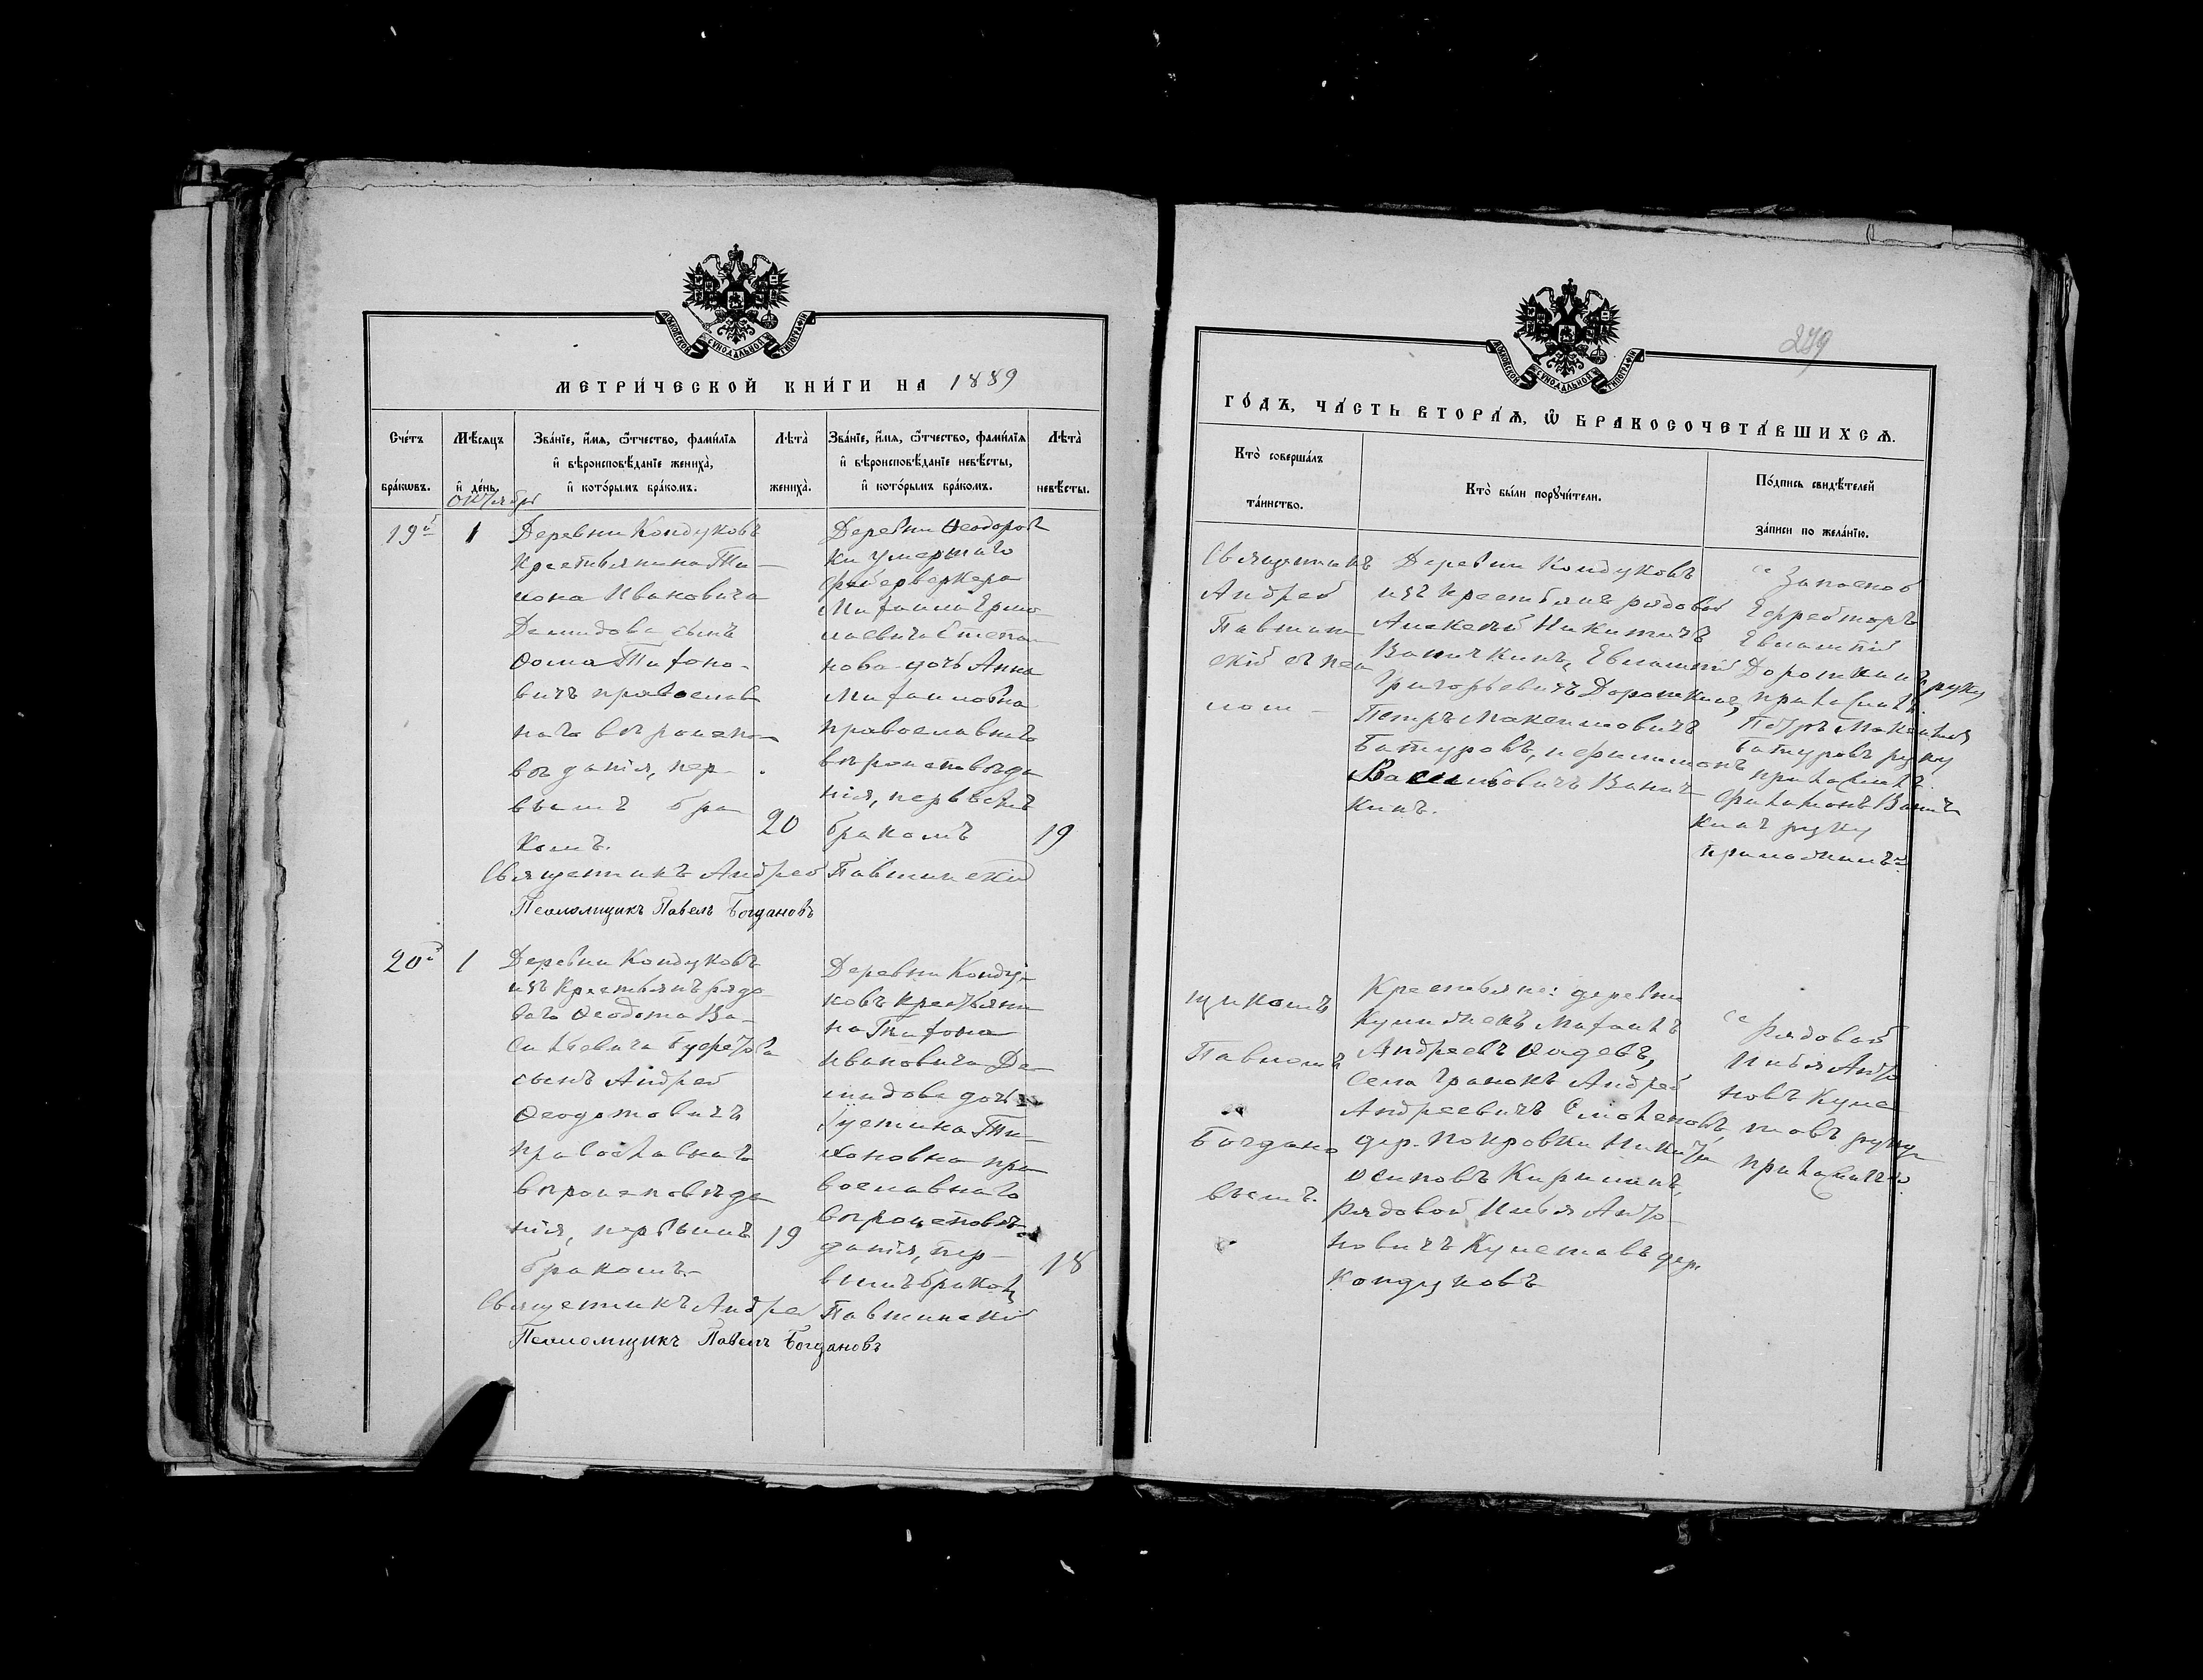 МОСКОВСКОЙ СѴНОДАЛЬНОЙ ТИПОГРАФІИ
МЕТРИ́ЧЕСКОЙ КНИ́ГИ НА 1889
Сче́тъ бра́кѡвъ.
Мѣ́сяцъ и҆ де́нь.
Зва́нїе, и҆́мя, ѻ҆́тчество, фами́лїя
и҆ вѣроисповѣ́данїе жениха̀,
и҆ кото́рымъ бра́комъ.
Лѣта̀ жениха̀.
Зва́нїе, и҆́мя, ѻ҆́тчество, фами́лїя
и҆ вѣроисповѣ́данїе невѣ́сты,
и҆ кото́рымъ бра́комъ.
Лѣта̀ невѣ́сты.
Октябрь
19й
1
Деревни Кондуковъ
Крестьянина Ти-
хона Ивановича
Демидова сынъ
Ѳома Тихоно-
вичъ православ
наго вѣроиспо-
вѣданія, пер-
вымъ бра
комъ.
20
Деревни Ѳеодоров
ки умершаго
фейерверкера
Михаила Ермо
лаевича Степа-
нова дочь Анна
Михаиловна
православнаго
вѣроисповѣда
нія, первымъ
бракомъ
19
Священникъ Андрей Павшинскій
Псаломщикъ Павелъ Богдановъ
20й
1
Деревни Кондуковъ
изъ Крестьянъ рядо
ваго Ѳеодота Ва-
сильевича
сынъ Андрей
Ѳеодотовичъ
православнаго
вѣроисповѣда
нія, первымъ
бракомъ.
19
Деревни Конду-
ковъ Крестьяни
на Тихона
Ивановича Де-
мидова дочь
Іустина Ти-
хоновна пра
вославнаго
вѣроисповѣ-
данія, пер-
вымъ бракомъ
18
Священникъ Андрей Павшинскій
Псаломщикъ Павелъ Богдановъ
279
МОСКОВСКОЙ СѴНОДАЛЬНОЙ ТИПОГРАФІИ
ГО́ДЪ, ЧА́СТЬ ВТОРА́Ѧ, Ѽ БРАКОСОЧЕТА́ВШИХСѦ.
Кто̀ соверша́лъ
та́инство.
Кто̀ бы́ли порꙋчи́тели.
По́дпись свидѣ́телей
за́писи по жела́нїю.
Священникъ
Андрей
Павшин-
скій съ пса
лом-
Деревни Кондуковъ
изъ крестьянъ рядовой
Алексѣй Никитичъ
Ваничкинъ, Евлампій
Григорьевичъ Дорошкинъ,
Петръ Максимовичъ
Батуровъ, и Филимонъ
Васильевичъ Ванич-
кинъ.
Запасной
Ефрейторъ
Евлампій
Дорошкинъ руку
приложилъ.
Петръ Максимовъ
Батуровъ руку
приложилъ.
Филимонъ Ванич
кинъ руку
приложилъ
щикомъ
Павломъ
Богдано
вымъ.
Крестьяне: деревни
Михаилъ
Андреевъ
Села Андрей
Андреевичъ
дер. Покровки Никита
Осиповъ
рядовой Илья Анто-
новичъ дер.
Кондуковъ
Рядовой
Илья Анто
новъ
руку
приложилъ